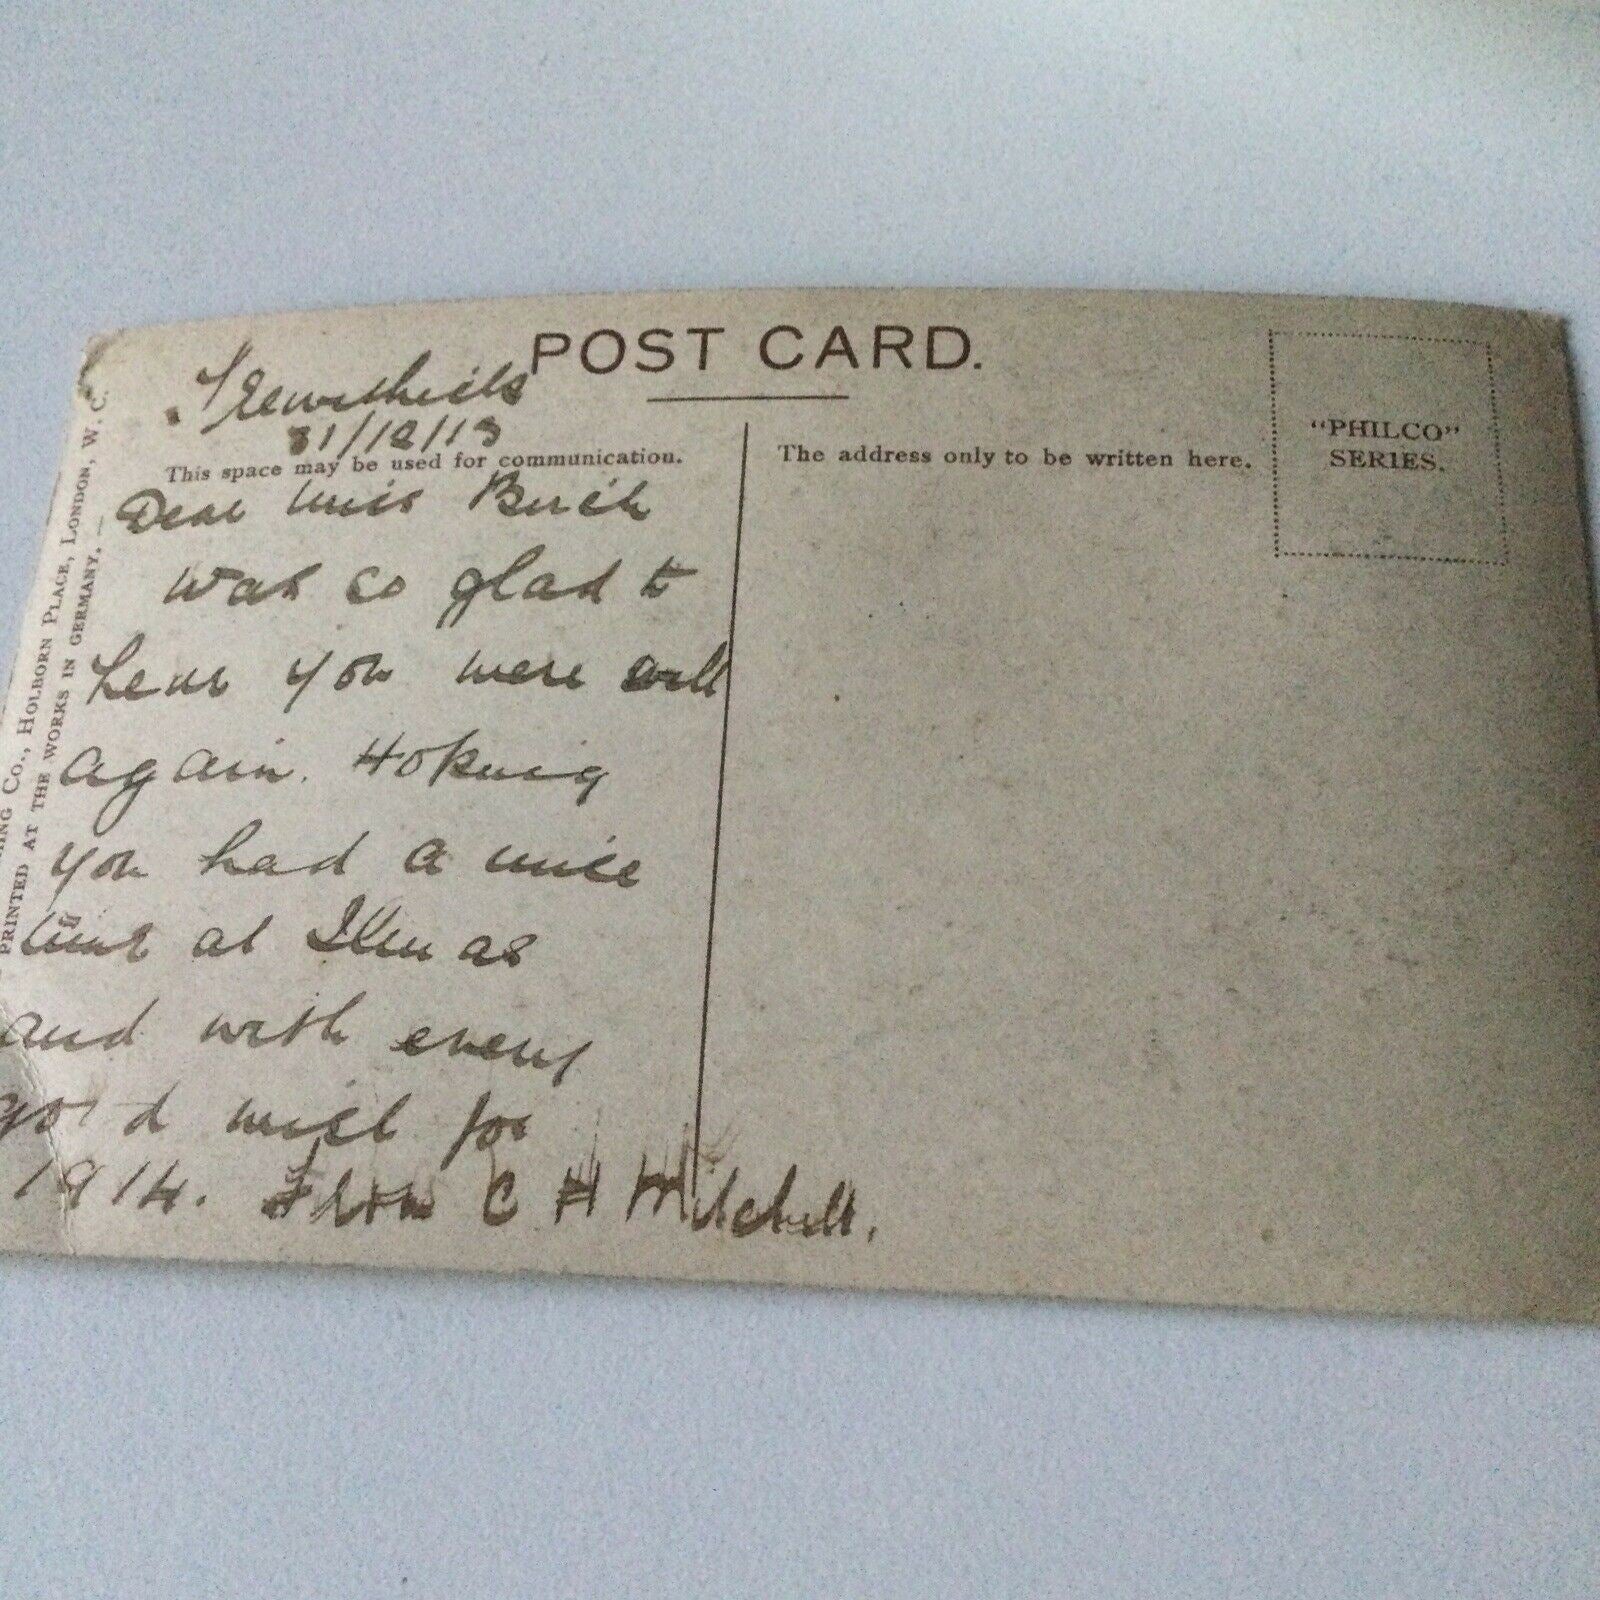 POST CARD.
Trewithick
31/12/13
This space may be used for communication.
The address only to be written here.
"PHILCO"
SERIES.
Dear Miss Birch
Was so glad to
hear you were well
again. Hoping
you had a nice
time at Xmas
and with every
good wish for
1914. From C H Mitchell.
HING CO., HOLBORN PLACE, LONDON, W. C.
PRINTED AT THE WORKS IN GERMANY.